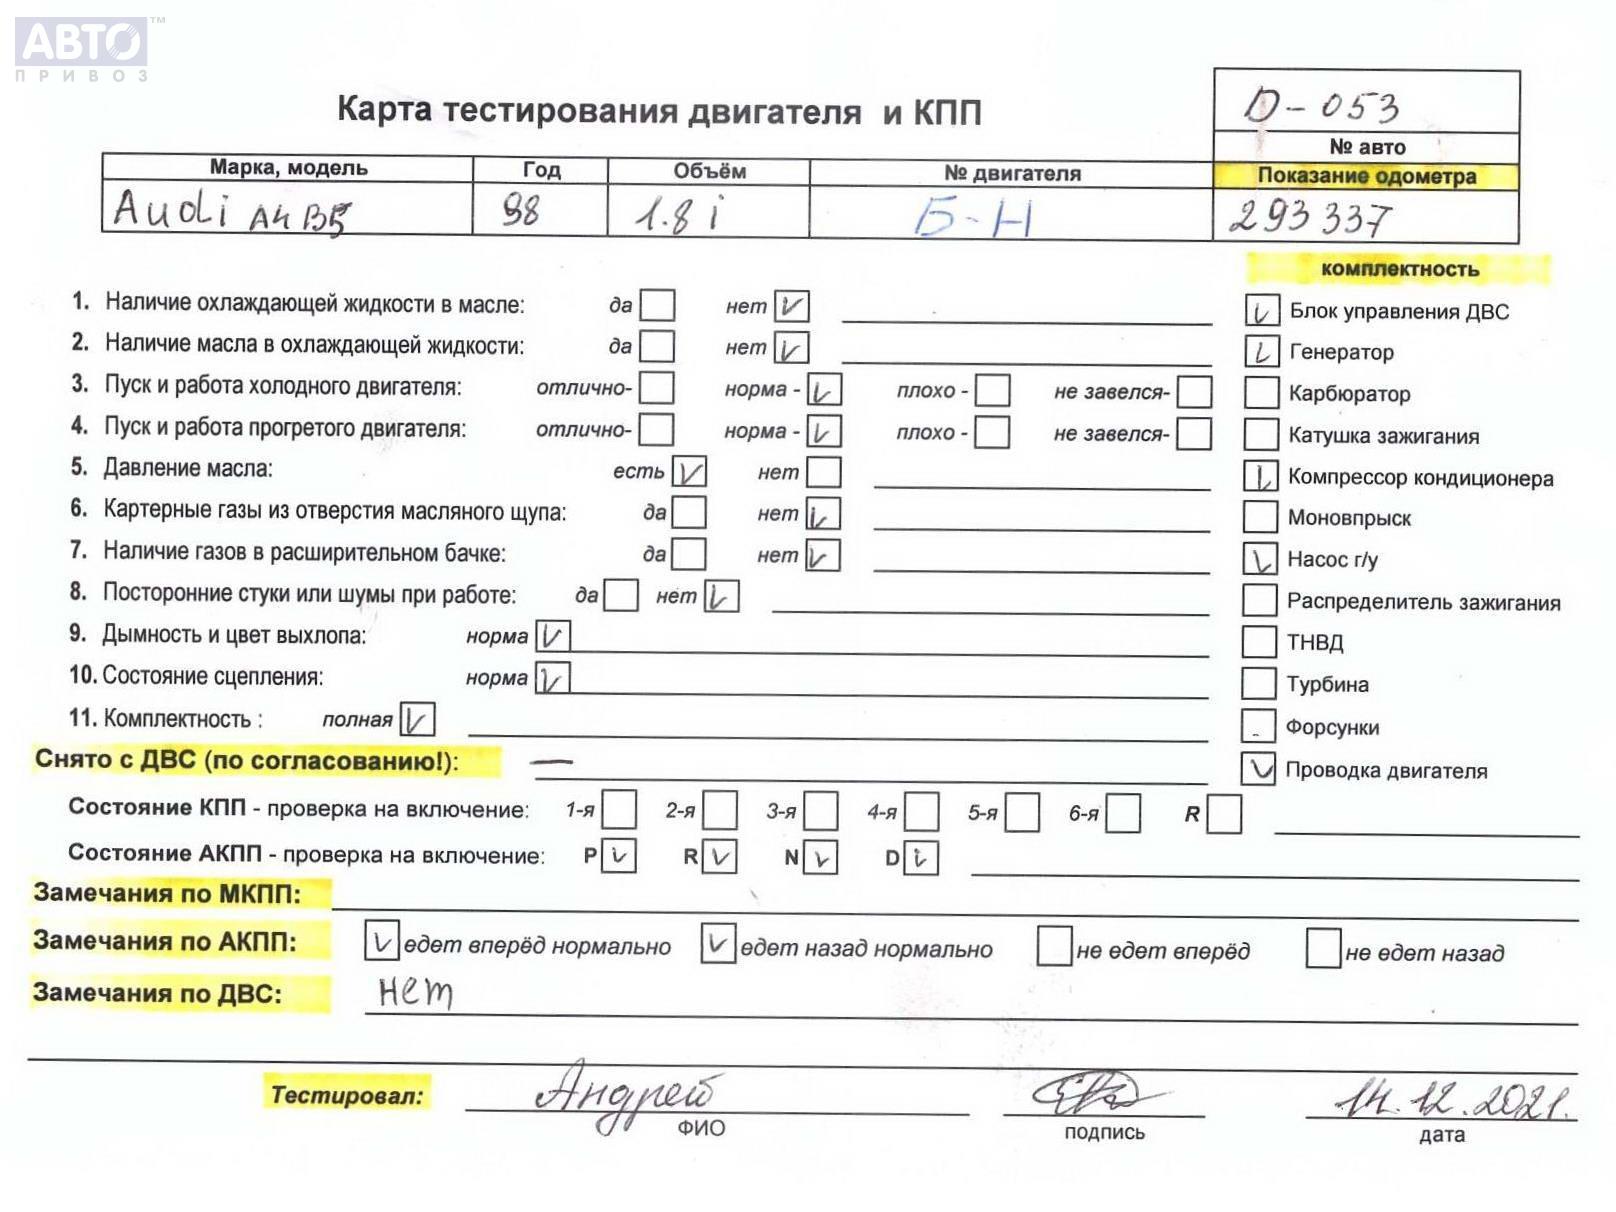 АВТО™
ПРИВОЗ
Карта тестирования двигателя и КПП
D-053
№ авто
Марка, модель Год Объём № двигателя Показание одометра
Audi A4 B5 98 1.8 i Б-Н 293 337
комплектность
1. Наличие охлаждающей жидкости в масле: да нет Блок управления ДВС
2. Наличие масла в охлаждающей жидкости: да нет Генератор
3. Пуск и работа холодного двигателя: отлично- норма - плохо - не завелся- Карбюратор
4. Пуск и работа прогретого двигателя: отлично- норма - плохо - не завелся- Катушка зажигания
5. Давление масла: есть нет Компрессор кондиционера
6. Картерные газы из отверстия масляного щупа: да нет Моновпрыск
7. Наличие газов в расширительном бачке: да нет Насос г/у
8. Посторонние стуки или шумы при работе: да нет Распределитель зажигания
9. Дымность и цвет выхлопа: норма ТНВД
10. Состояние сцепления: норма Турбина
11. Комплектность : полная Форсунки
Снято с ДВС (по согласованию!): — Проводка двигателя
Состояние КПП - проверка на включение: 1-я 2-я 3-я 4-я 5-я 6-я R
Состояние АКПП - проверка на включение: P R N D
Замечания по МКПП:
Замечания по АКПП: едет вперёд нормально едет назад нормально не едет вперёд не едет назад
Замечания по ДВС: нет
Тестировал: Андрей 14.12.2021.
ФИО подпись дата